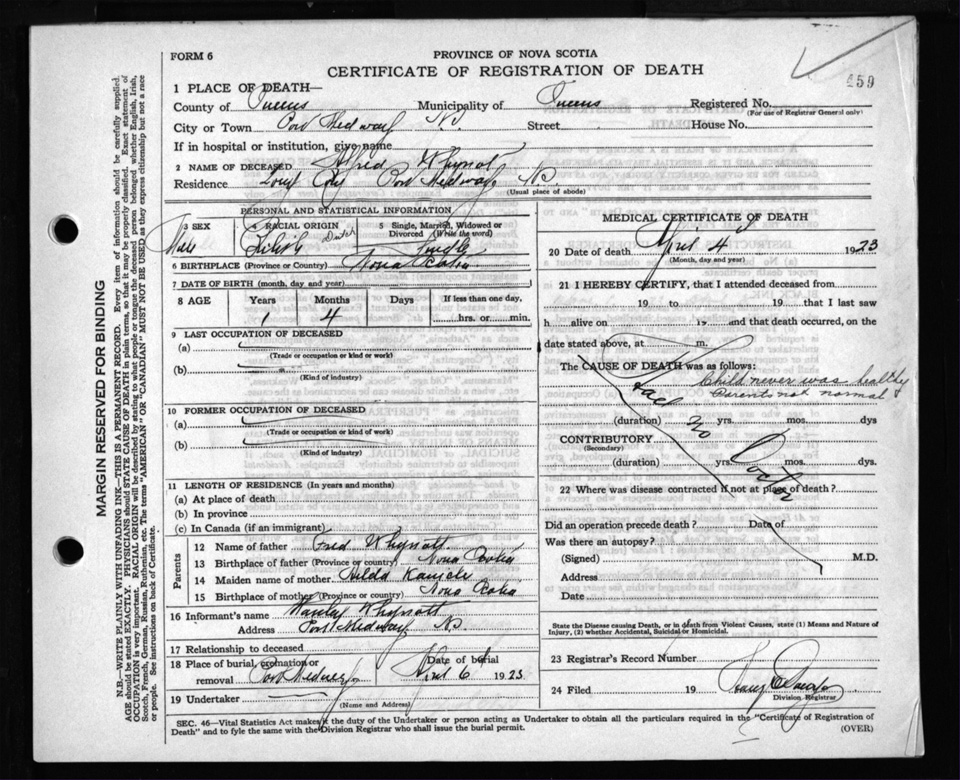 FORM 6
PROVINCE OF NOVA SCOTIA
CERTIFICATE OF REGISTRATION OF DEATH
459
1 PLACE OF DEATH—
County of Queens Municipality of Queens Registered No.
(For use of Registrar General only)
City or Town Port Medway NS Street House No.
If in hospital or institution, give name
2 NAME OF DECEASED Alfred Whynott
Residence Port Medway NS
(Usual place of abode)
PERSONAL AND STATISTICAL INFORMATION
3 SEX 4 RACIAL ORIGIN 5 Single, Married, Widowed or Divorced (Write the word)
Male Dutch Single
6 BIRTHPLACE (Province or Country) Nova Scotia
7 DATE OF BIRTH (month, day and year)
8 AGE Years Months Days If less than one day,
1 4 hrs. or min.
9 LAST OCCUPATION OF DECEASED
(a)
(Trade or occupation or kind or work)
(b)
(Kind of industry)
10 FORMER OCCUPATION OF DECEASED
(a)
(Trade or occupation or kind or work)
(b)
(Kind of industry)
11 LENGTH OF RESIDENCE (In years and months)
(a) At place of death
(b) In province
(c) In Canada (if an immigrant)
Parents
12 Name of father Fred Whynott
13 Birthplace of father (Province or country) Nova Scotia
14 Maiden name of mother Hilda
15 Birthplace of mother (Province or country) Nova Scotia
16 Informant's name Whynott
Address Port Medway NS
17 Relationship to deceased
18 Place of burial, cremation or removal Port Medway Date of burial April 6 1923
19 Undertaker
(Name and Address)
MEDICAL CERTIFICATE OF DEATH
20 Date of death April 4 1923
(Month, day and year)
21 I HEREBY CERTIFY, that I attended deceased from
19 to 19 that I last saw
h alive on 19 and that death occurred, on
date stated above, at m.
The CAUSE OF DEATH was as follows:
Child never was healthy
Parents not normal
had
(duration) no yrs. mos. dys
CONTRIBUTORY
(Secondary)
Doctor
(duration) yrs. mos. dys.
22 Where was disease contracted if not at place of death?
Did an operation precede death? Date of
Was there an autopsy?
(Signed) M.D.
Address
Date
State the Disease causing Death, or in death from Violent Causes, state (1) Means and Nature of
Injury, (2) whether Accidental, Suicidal or Homicidal.
23 Registrar's Record Number
24 Filed 19
Division Registrar
SEC. 46—Vital Statistics Act makes it the duty of the Undertaker or person acting as Undertaker to obtain all the particulars required in the "Certificate of Registration of
Death" and to fyle the same with the Division Registrar who shall issue the burial permit. (OVER)
MARGIN RESERVED FOR BINDING
N.B.—WRITE PLAINLY WITH UNFADING INK—THIS IS A PERMANENT RECORD. Every item of information should be carefully supplied.
AGE should be stated EXACTLY. PHYSICIANS should STATE CAUSE OF DEATH in plain terms, so that it may be properly classified. Exact statement of
OCCUPATION is very important. RACIAL ORIGIN will be described by stating to what people or tongue the deceased person belonged whether English, Irish,
Scotch, French, German, Russian, Ruthenian, etc. The terms "AMERICAN" OR "CANADIAN" MUST NOT BE USED as they express citizenship but not a race
or people. See instructions on back of Certificate.